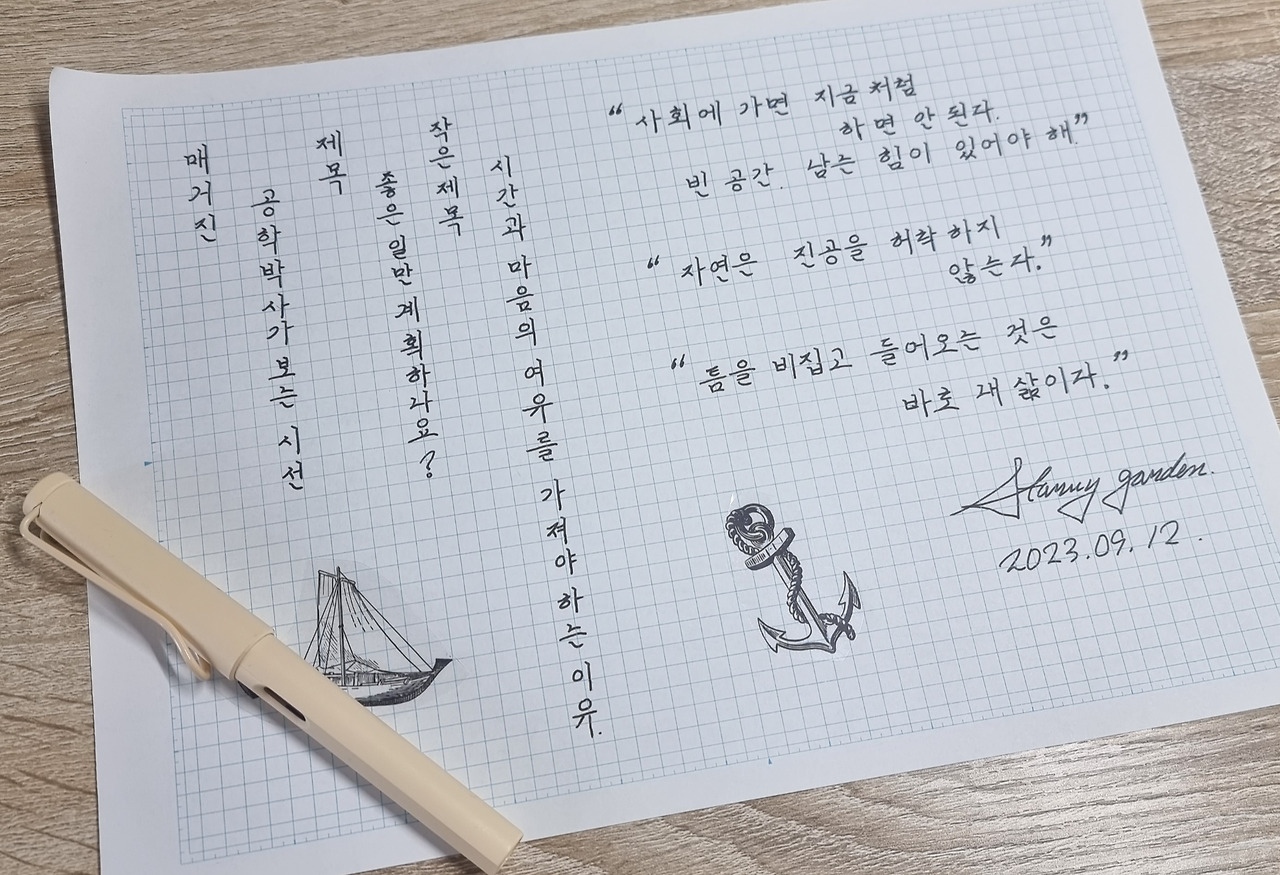 매거진
공학박사가 보는 시선
제목
좋은 일만 계획하라요?
작은 제목
시간과 마음의 여유를 가져야 하는 이유.
“사회에 가면 지금처럼
하면 안 된다.
빈 공간. 남는 힘이 있어야 해.”
“자연은 진공을 허락하지
않는다.”
“틈을 비집고 들어오는 것은
바로 내 삶이다.”
garden.
2023.09.12.